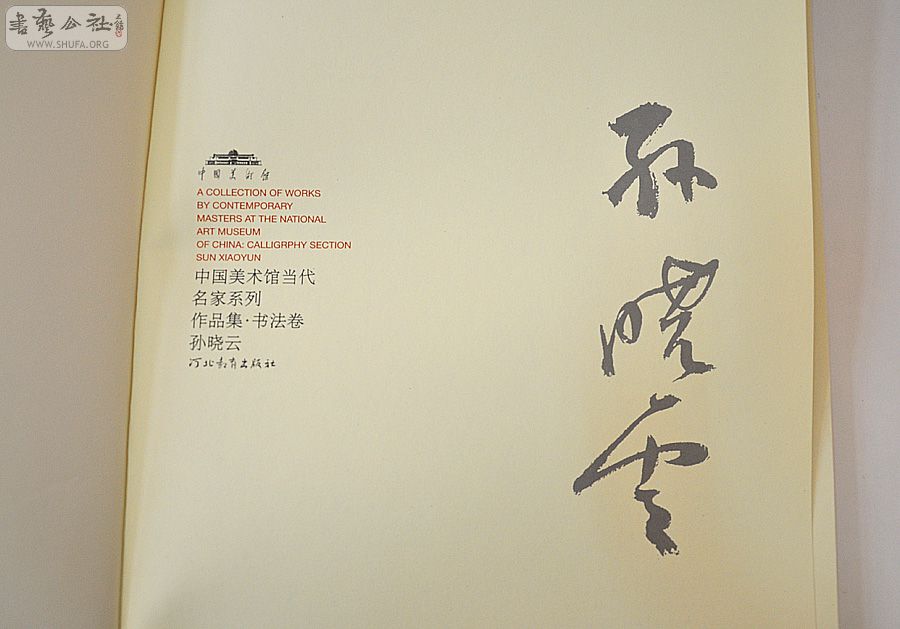 書藝公社
WWW.SHUFA.ORG
中国美术馆
A COLLECTION OF WORKS
BY CONTEMPORARY
MASTERS AT THE NATIONAL
ART MUSEUM
OF CHINA: CALLIGRPHY SECTION
SUN XIAOYUN
中国美术馆当代
名家系列
作品集·书法卷
孙晓云
河北教育出版社
孫
曉
雲